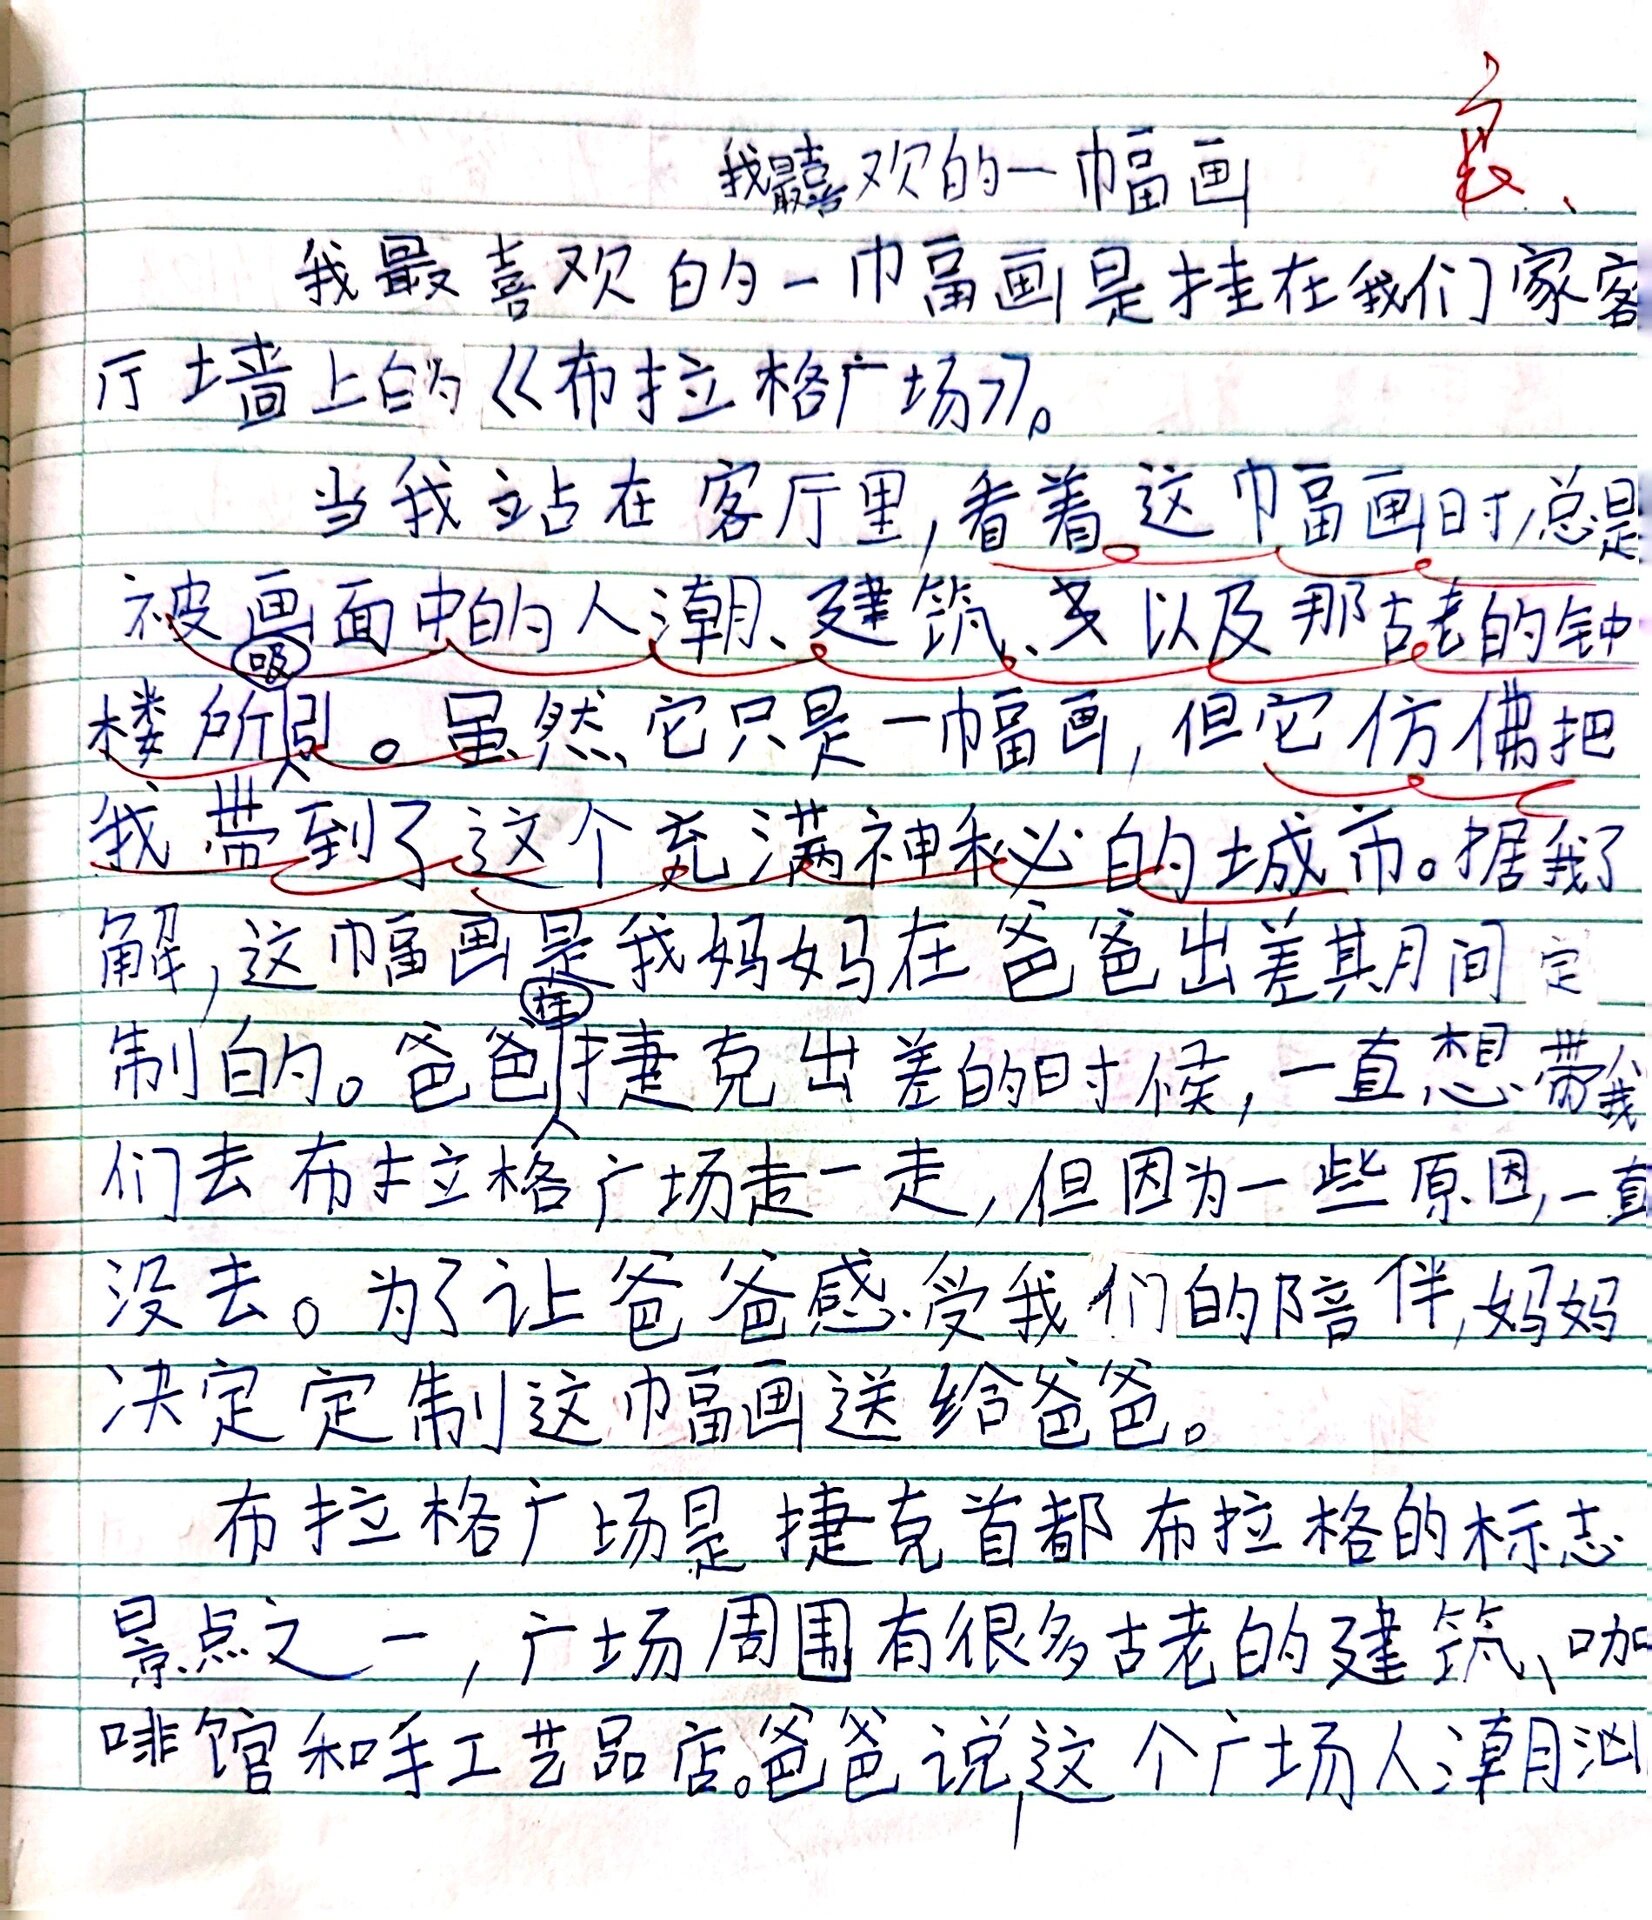 良
我最喜欢的一幅画
我最喜欢的一幅画是挂在我们家客
厅墙上的《布拉格广场》。
当我站在客厅里,看着这幅画时,总是
被画面中的人潮、建筑、以及那古老的钟
楼所吸引。虽然它只是一幅画,但它仿佛把
我带到了这个充满神秘的城市。据我了
解,这幅画是我妈妈在爸爸出差期间定
制的。爸爸在捷克出差的时候,一直想带我
们去布拉格广场走一走,但因为一些原因,一直
没去。为了让爸爸感受我们的陪伴,妈妈
决定定制这幅画送给爸爸。
布拉格广场是捷克首都布拉格的标志
景点之一,广场周围有很多古老的建筑、咖
啡馆和手工艺品店。爸爸说,这个广场人潮汹